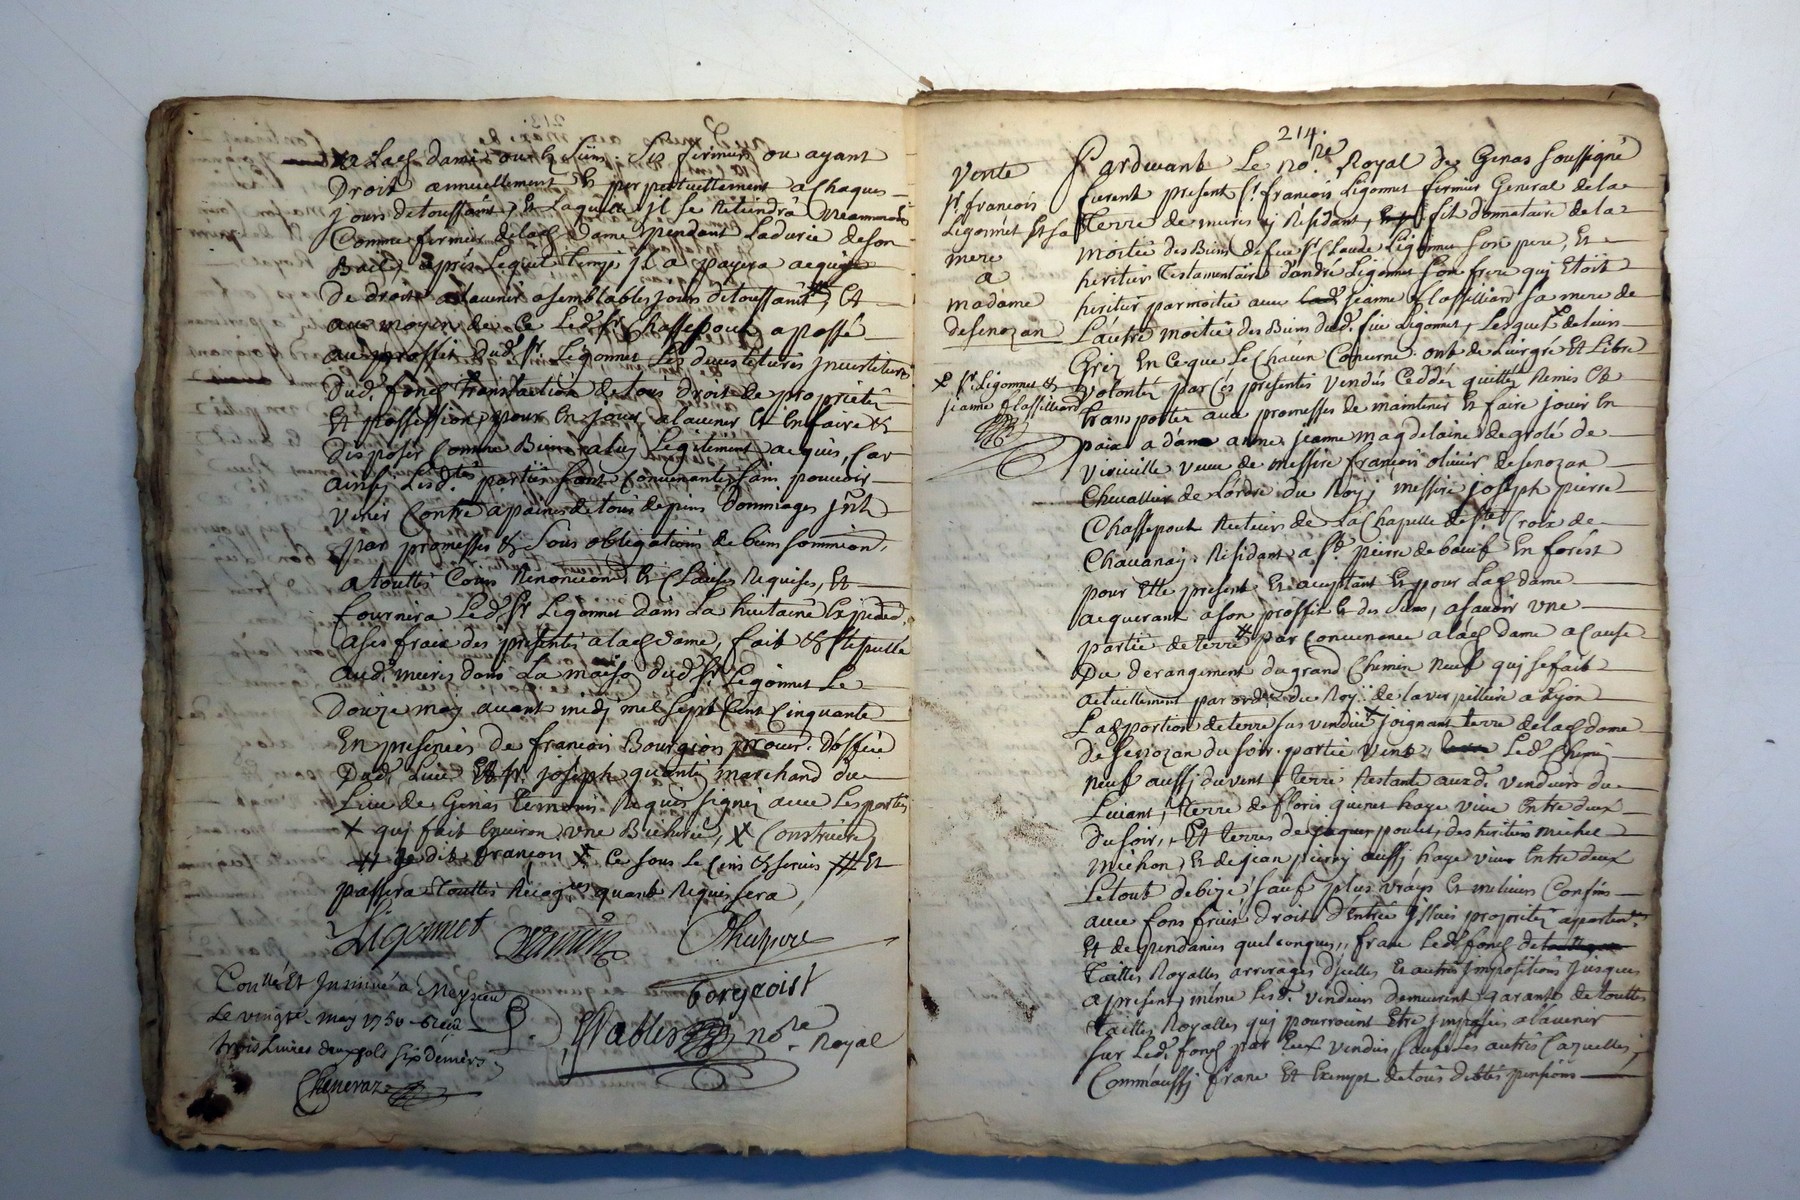 a lad dame ou ez siens. Ses fermiers ou ayant
Droit annuellement Et perpetuellement a Chaques
jours detoussaint, Et Laquelle jl se Retiendra Neanmoins
Comme fermier delad dame pendant La durée de son
Bail, après Lequel temps jl a payera
de droit alavenir a semblables jours detoussaint, Et
au moyen de Ce Led Sr Chassepout a passé
au proffit dud Sr Ligonnet Les
Dud fond translation de tous droit de proprieté
Et possession, pour En jouir alavenir Et En faire &
disposer Comme Bien Legitiment acquis, Car
ainsy Lesd parties sont Convenantes sans pouvoir
venir Contre a paines de tous depens Dommages
par promesses & sous obligations de biens
a touttes Cours Renonciions Et Clauses Requises, Et
fournira Led Sr Ligonnet dans La huitaine
ases frais des presentes alad dame, fait & stipullé
aud meiries dans La maison dud Sr Ligonnet Le
Douze may avant midy mil sept Cent Cinquante
En presences de francois Bourgeois
Dud Lieu Et Sr joseph quantin marchand du
Lieu de Genas temoins Requis signés avec Les parties
X qui fait Environ une Bicherée, X Construire
# X Ce sous Le Cens & servis # Et
passera touttes quand Requis sera
Ligonnet
borgeoist
nore Royal
Conllé Et Insinué a Meyzieu
Le vingt may 1750 Reçu
trois Livres deux sols six deniers
214.
Vente
sr francois
Ligonnet Et sa
mere
a
madame
desenozan
x sr Ligonnet &
jeanne flassilliard
Pardevant Le nore Royal de Genas soussigné
furent present Sr francois Ligonnet fermier General dela
Terre de meiries y Residant, fils donnataire dela
moitié des Biens de feu Sr Claude Ligonnet son pere, Et
heritier testamentaire d'andré Ligonnet son frere qui Etoit
heritier par moitié avec jeanne flassilliard sa mere de
L'autre moitié des Biens dud feu Ligonnet, Lesquels de leurs
Grez En Ceque Le Chacun Concerne ont de Leur gré Et Libre
volonté par Ces presentes vendus Ceddé quitté Remis Et
transporté avec promesses de maintenir Et faire jouir En
paix a dame anne jeanne magdelaine de grolé de
virieville veuve de messire francois olivier desenozan
Chevallier de L'ordre du Roy, messire joseph pierre
Chassepout Recteur de La Chapelle de Ste Croix de
Chavanay Residant a St pierre de boeuf En forest
pour Elle present Et acceptant Et pour Lad dame
acquerant a son proffit Et des siens, a savoir une
partie de terre # par Convenance a lad dame a Cause
Du derangement du grand Chemin neuf qui se fait
actuellement par ordre du Roy de laverpilliere a Lyon
Lad portion de terre sus vendue joignant terre delad dame
de senozan du soir partie vent, Led Chemin
neuf aussy du vent, terre Restante auxd vendeurs du
Levant, terre de floris quenet haye vive Entre deux
Du soir, Et terres de jaques poulet, des heritiers michel
michon, Et de jean pierry aussy haye vive Entre deux
Letout debize sauf plus vrays Et meilieurs Confins
avec fons fruits droits d'Entrée Issuës proprietez
Et dependances quelconques, franc Led fond de
tailles Royalles arrerages d'jcelles Et autres jmpositions jusques
a present, même Lesd vendeurs demeurent garants de touttes
tailles Royalles qui pourroient Etre jmposées alavenir
sur Led fond par Eux vendus
Comm'aussy franc Et Exempt de tous debtes pensions